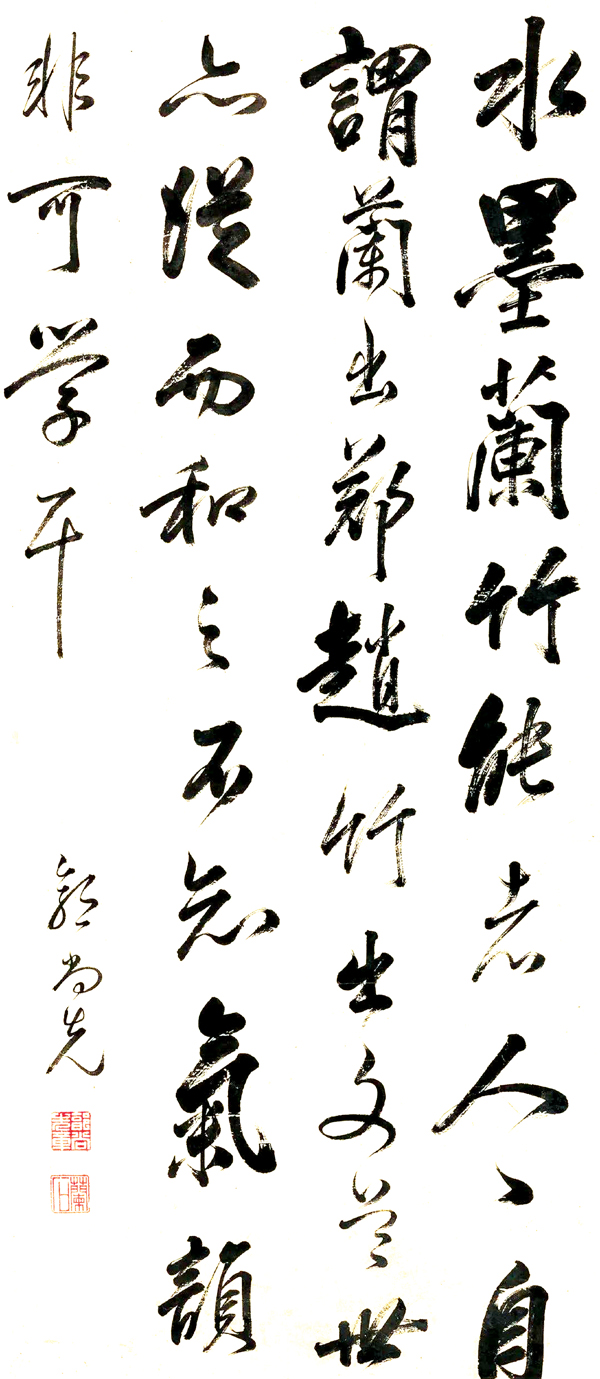 水墨蘭竹能者人〻自
謂蘭出鄭趙竹出文世
亦從而和之不知氣韻
非可學耳
郭尚先
蘭石